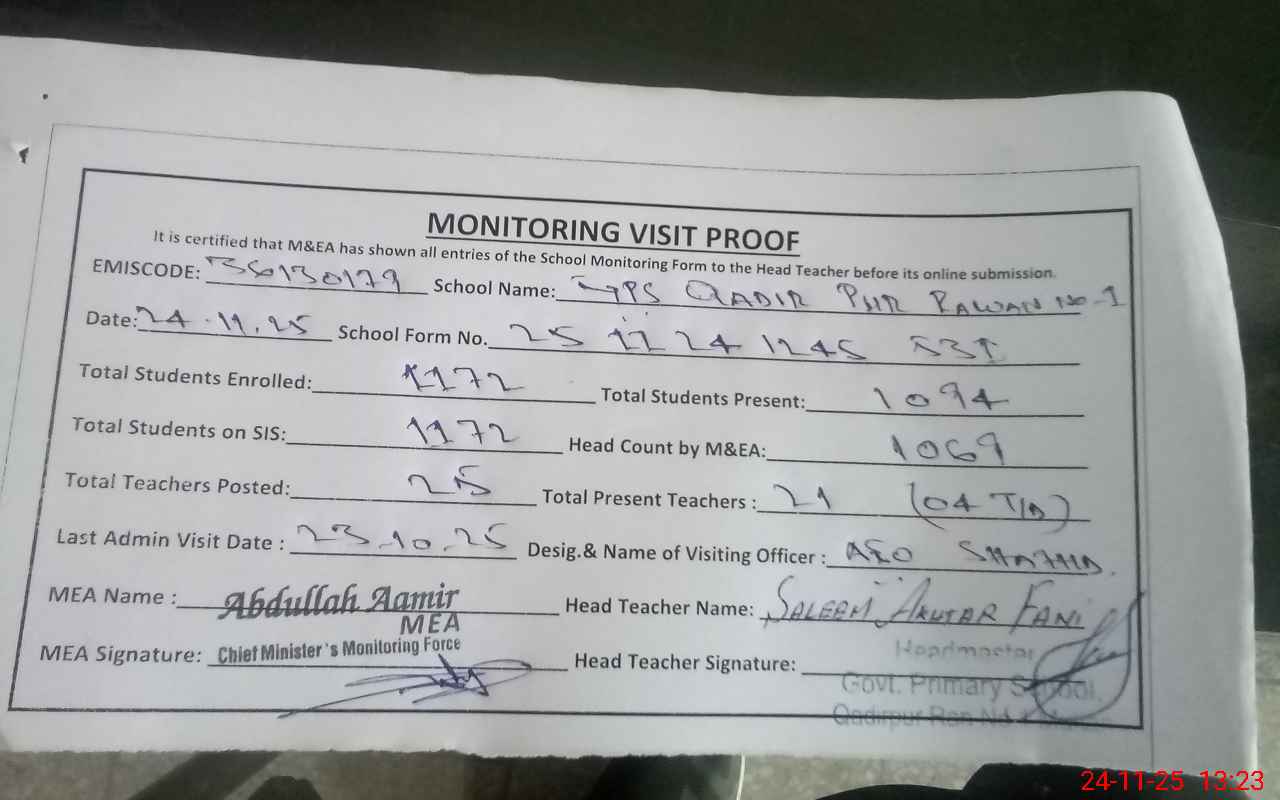 MONITORING VISIT PROOF
It is certified that M&EA has shown all entries of the School Monitoring Form to the Head Teacher before its online submission.
EMISCODE: 36130179 School Name: GPS QADIR PUR RAWAN NO-1
Date: 24.11.25 School Form No. 25 11 24 1245 531
Total Students Enrolled: 1172 Total Students Present: 1094
Total Students on SIS: 1172 Head Count by M&EA: 1069
Total Teachers Posted: 25 Total Present Teachers : 21 (04 T/D)
Last Admin Visit Date : 23.10.25 Desig.& Name of Visiting Officer : AEO
MEA Name : Abdullah Aamir Head Teacher Name: SALEEM AKHTAR FANI
MEA
Chief Minister's Monitoring Force
Headmaster
MEA Signature: Head Teacher Signature:
Govt. Primary School,
Qadirpur Ran
24-11-25 13:23